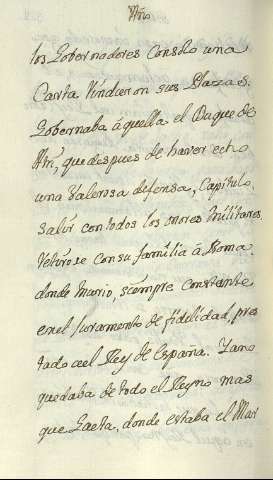 Año
los Gobernadores consolo una
Carta rindieron sus Plazas.
Gobernaba á quella el Duque de
Atri, que despues de haver echo
una valerosa defensa, Capitulo
salir con todos los onores Militares
retirose consu familia á Roma
donde murio, siempre constante
enel Juramento de fidelidad, pres
tado ael Rey de España. Yano
quedaba de todo el Reyno mas
que Gaeta, donde estaba el Mar